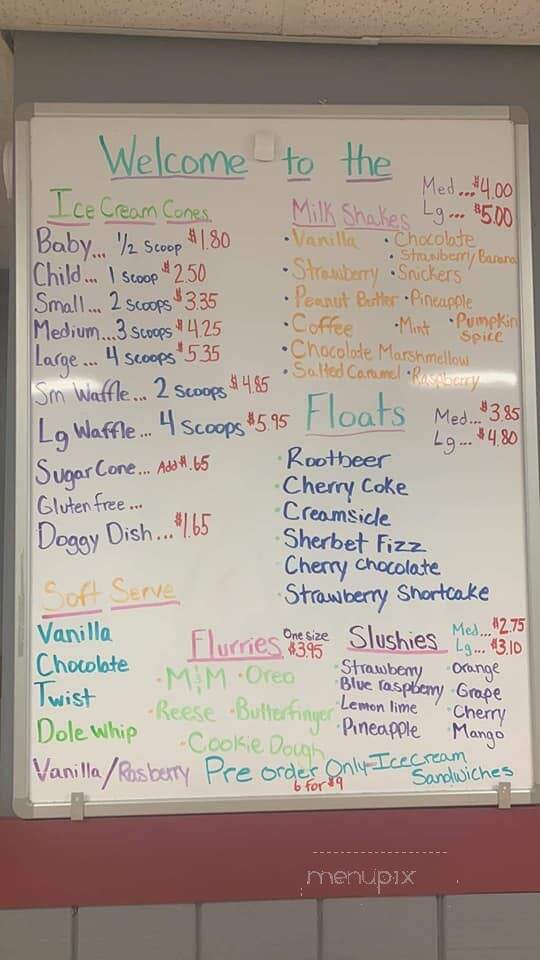 Welcome to the
Ice Cream Cones
Baby... 1/2 Scoop $1.80
Child... 1 scoop $2.50
Small... 2 scoops $3.35
Medium...3 scoops $4.25
Large... 4 scoops $5.35
Sm Waffle... 2 scoops $4.85
Lg Waffle... 4 scoops $5.95
Sugar Cone... Add $.65
Gluten free...
Doggy Dish... $1.65
Milk Shakes
Med...$4.00
Lg... $5.00
•Vanilla •Chocolate
•Strawberry Banana
•Strawberry •Snickers
•Peanut Butter •Pineapple
•Coffee •Mint •Pumpkin Spice
•Chocolate Marshmellow
•Salted Caramel •Raspberry
Floats
Med...$3.85
Lg... $4.80
•Rootbeer
•Cherry Coke
•Creamsicle
•Sherbet Fizz
•Cherry Chocolate
•Strawberry Shortcake
Soft Serve
Vanilla
Chocolate
Twist
Dole Whip
Vanilla/Rasberry
Flurries One size $3.95
•M&M •Oreo
•Reese •Butterfinger
•Cookie Dough
Slushies Med...$2.75
Lg... $3.10
•Strawberry •orange
•Blue raspberry •Grape
•Lemon lime •Cherry
•Pineapple •Mango
Pre order Only-Icecream Sandwiches
6 for $9
menupix